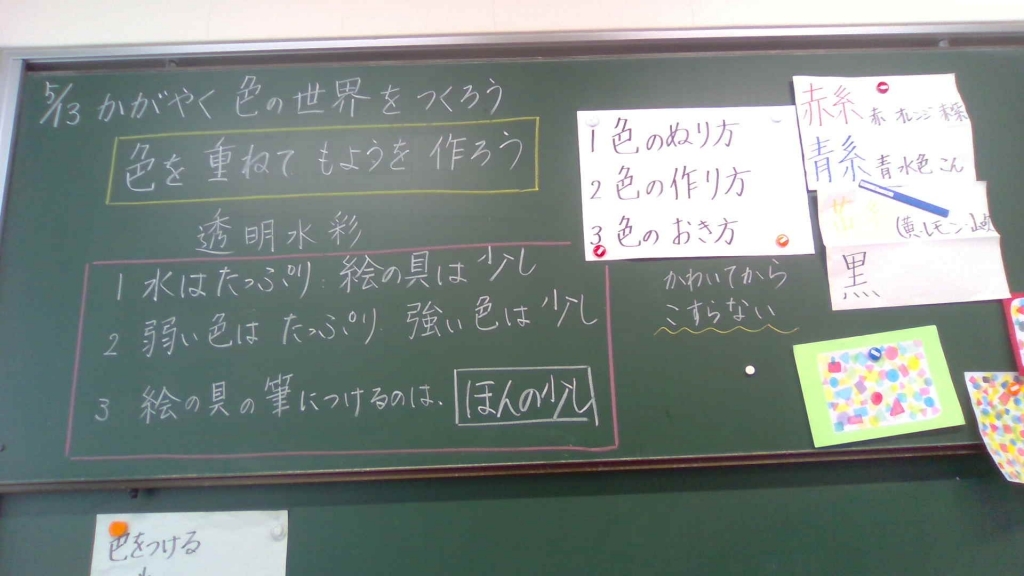 5/13 かがやく 色の世界をつくろう
色を重ねてもようを作ろう
透明水彩
1 水はたっぷり 絵の具は少し
2 弱い色は たっぷり 強い色は少し
3 絵の具の筆につけるのは、ほんの少し
1 色のぬり方
2 色の作り方
3 色のおき方
かわいてから
こすらない
赤系 赤 オレンジ
青系 青 水色 こん
黄 レモン
黒
色をつける